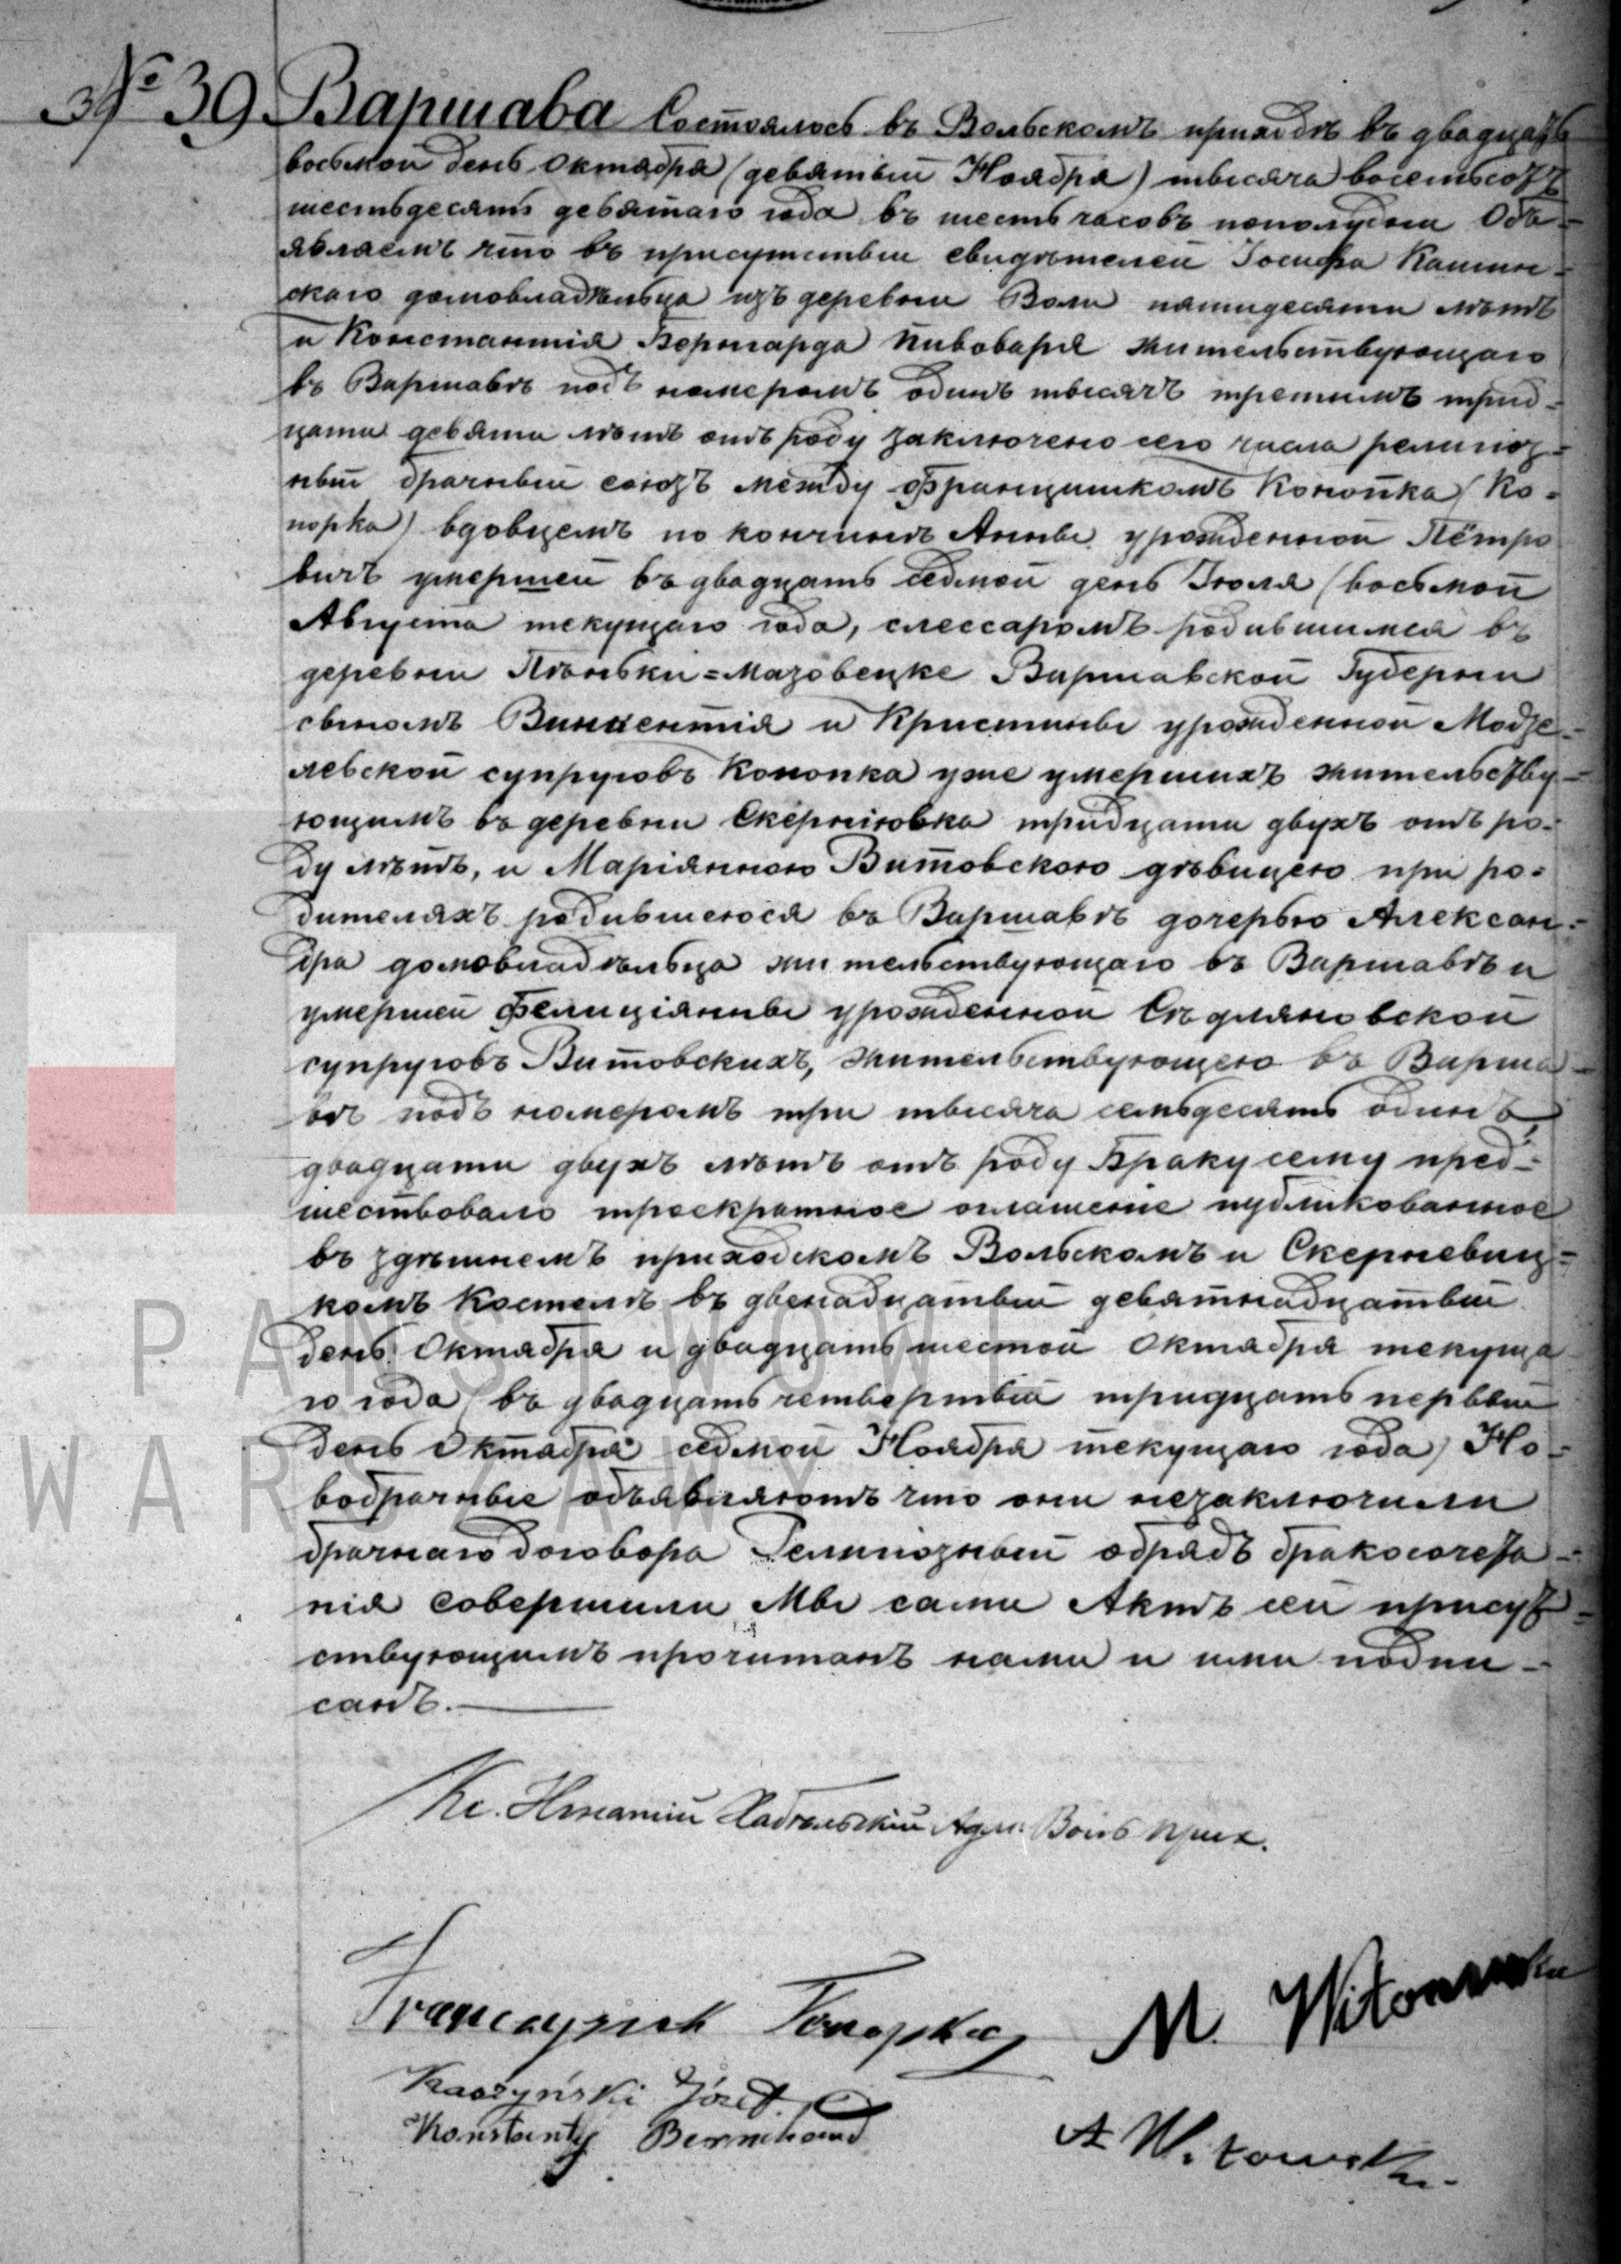 № 39 Варшава Состоялось въ Вольскомъ приходѣ въ двадцать
восьмой день Октября (девятый Ноября) тысяча восемьсотъ
шестьдесятъ девятаго года въ шесть часовъ пополудни Объ=
являемъ что въ присутствіи свидѣтелей Іосифа Кашин=
скаго домовладѣльца изъ деревни Воли пятидесяти лѣтъ
и Константія Бернгарда Пивоваря жительствующаго
въ Варшавѣ подъ номеромъ одинъ тысячъ третимъ трид=
цати девяти лѣтъ отъ роду заключено сего числа религіоз=
ный брачный союзъ между Францишкомъ Конопка (Ко=
норка) вдовцемъ по кончинѣ Анны урожденной Пётро
вичъ умершей въ двадцать седмой день Іюля (восьмой
Августа текущаго года, слессаромъ родившимся въ
деревни Пѣньки=Мазовецке Варшавской Губерніи
сыномъ Винцентія и Кристины урожденной Модзе=
левской супруговъ Конопка уже умершихъ жительству=
ющимъ въ деревни Скерніовка тридцати двухъ отъ ро=
ду лѣтъ, и Маріянною Витовского дѣвицею при ро=
дителяхъ родившеюся въ Варшавѣ дочерью Алексан=
дра домовладѣльца жительствующаго въ Варшавѣ и
умершей Фелиціянны урожденной Сѣдляновской
супруговъ Витовскихъ, жительствующею въ Варша=
вѣ подъ номеромъ три тысяча семьдесятъ одинъ
двадцати двухъ лѣтъ отъ роду Браку сему пред=
шествовало троекратное оглашеніе публикованное
въ здѣшнемъ приходскомъ Вольскомъ и Скерневиц=
комъ Костелѣ въ двенадцатый девятнадцатый
день Октября и двадцать шестой Октября текуща
го года (въ двадцать четвертый тридцать первый
день Октября седмой Ноября текущаго года) Но=
вобрачные объявляютъ что они незаключили
брачнаго договора Религіозный обрядъ бракосочета=
нія совершили Мы сами Актъ сей присут=
ствующимъ прочитанъ нами и ими подпи=
санъ.
Кс. Адм. Воль прих.
Franciszek Konopka M. Witowska
Kaszyński Józef
Konstanty Bernhard
A Witowski
PAŃSTWOWE
WARSZAWY